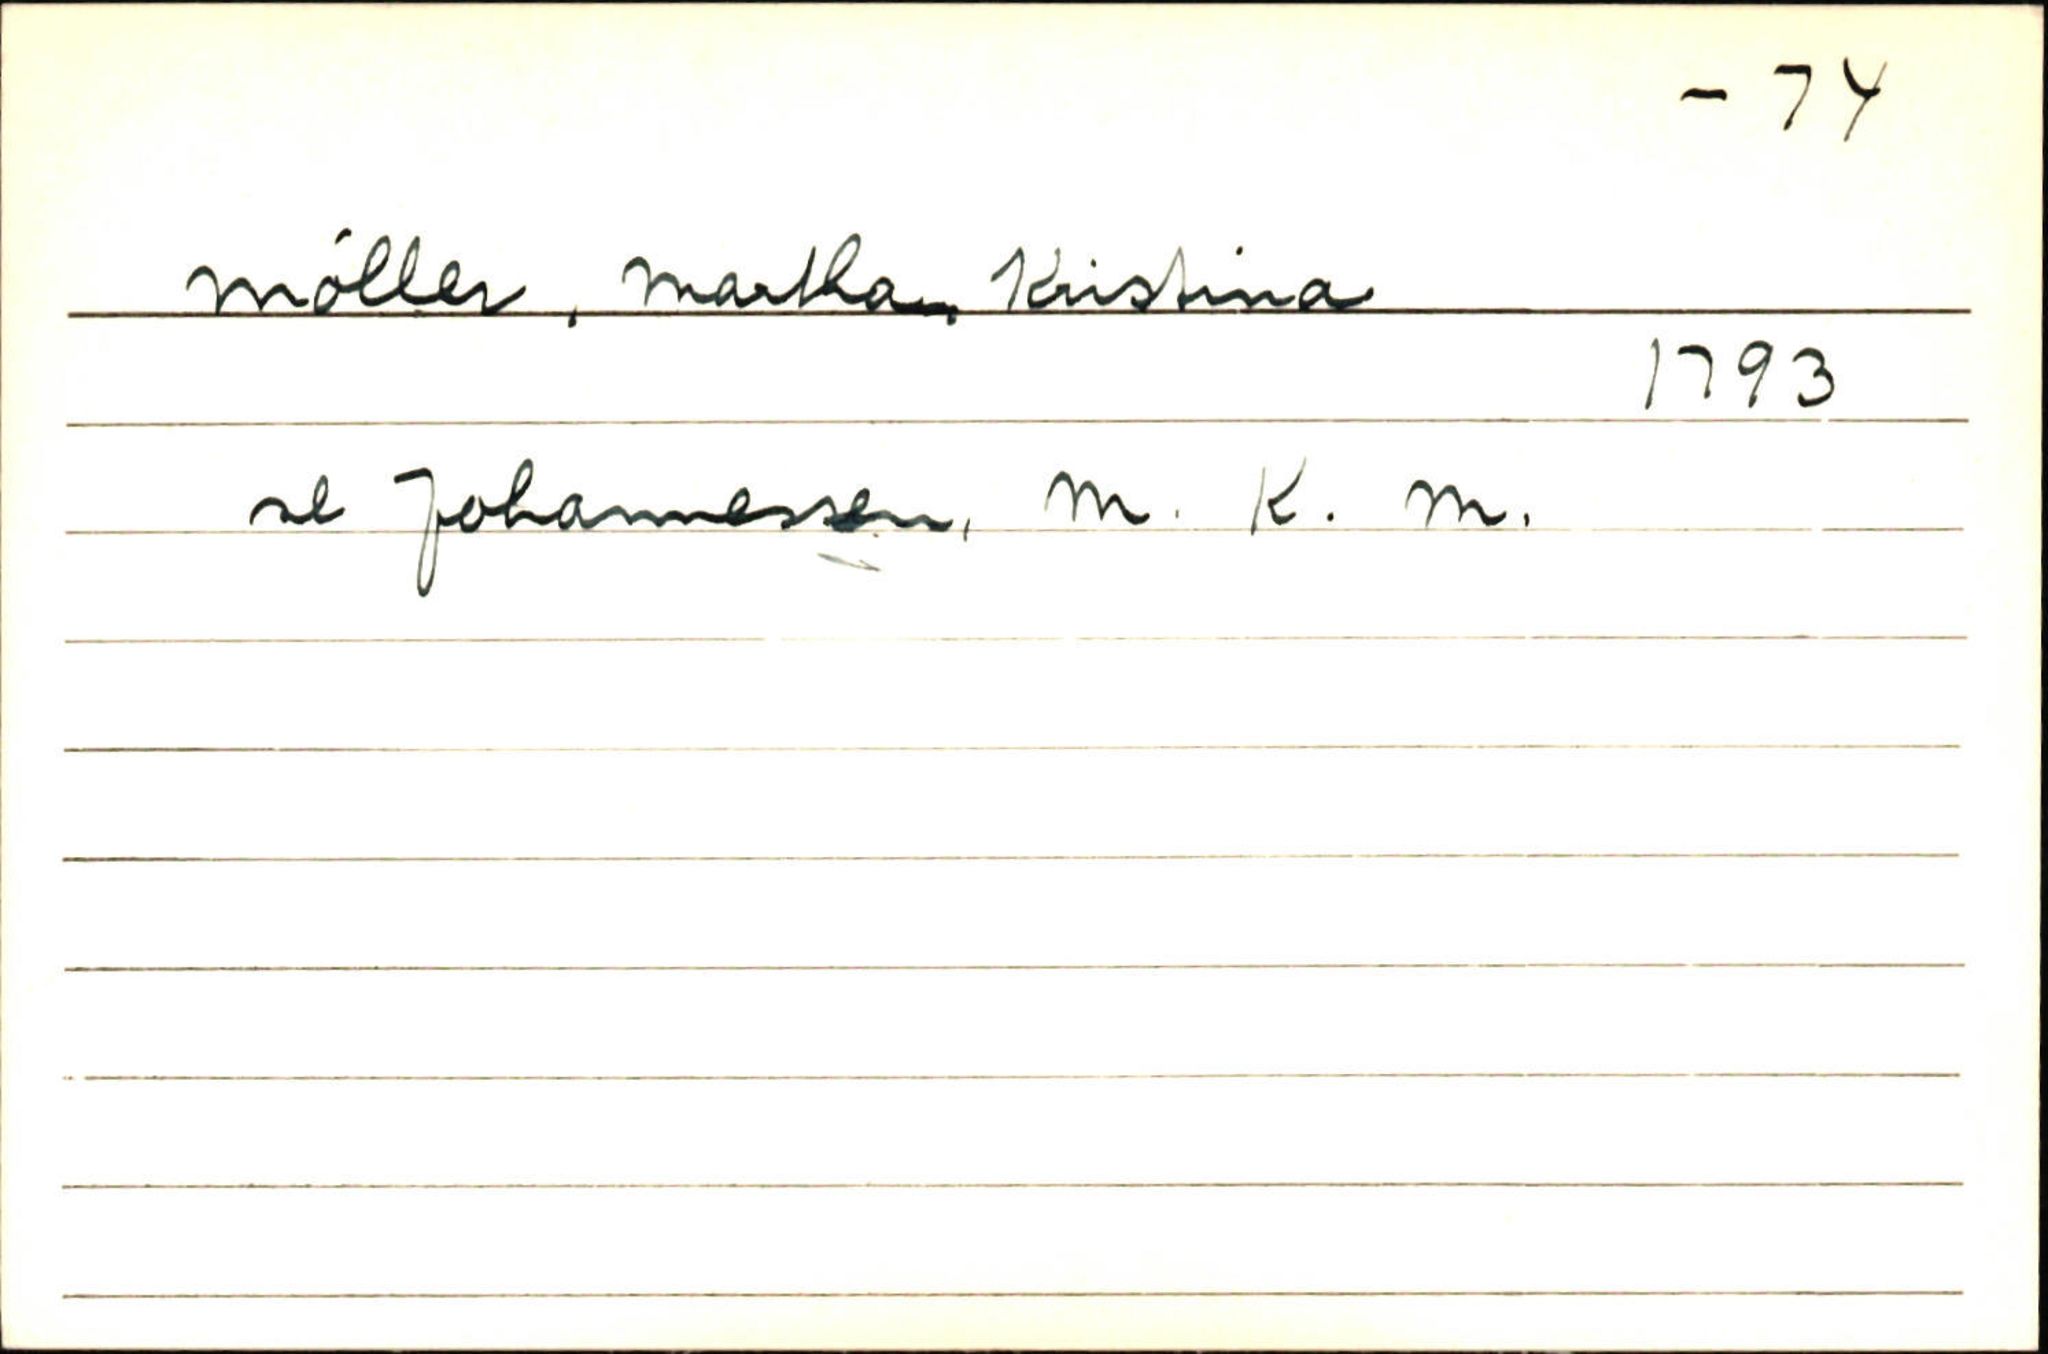 - 74
Möller, Martha, Kristina
1793
se Johannessen, M. K. M.